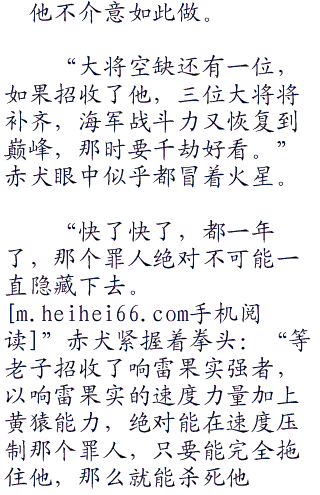 他不介意如此做。
“大将空缺还有一位，
如果招收了他，三位大将将
补齐，海军战斗力又恢复到
巅峰，那时要千劫好看。”
赤犬眼中似乎都冒着火星。
“快了快了，都一年
了，那个罪人绝对不可能一
直隐藏下去。
[m.heihei66.com手机阅
读]”赤犬紧握着拳头：“等
老子招收了响雷果实强者，
以响雷果实的速度力量加上
黄猿能力，绝对能在速度压
制那个罪人，只要能完全拖
住他，那么就能杀死他